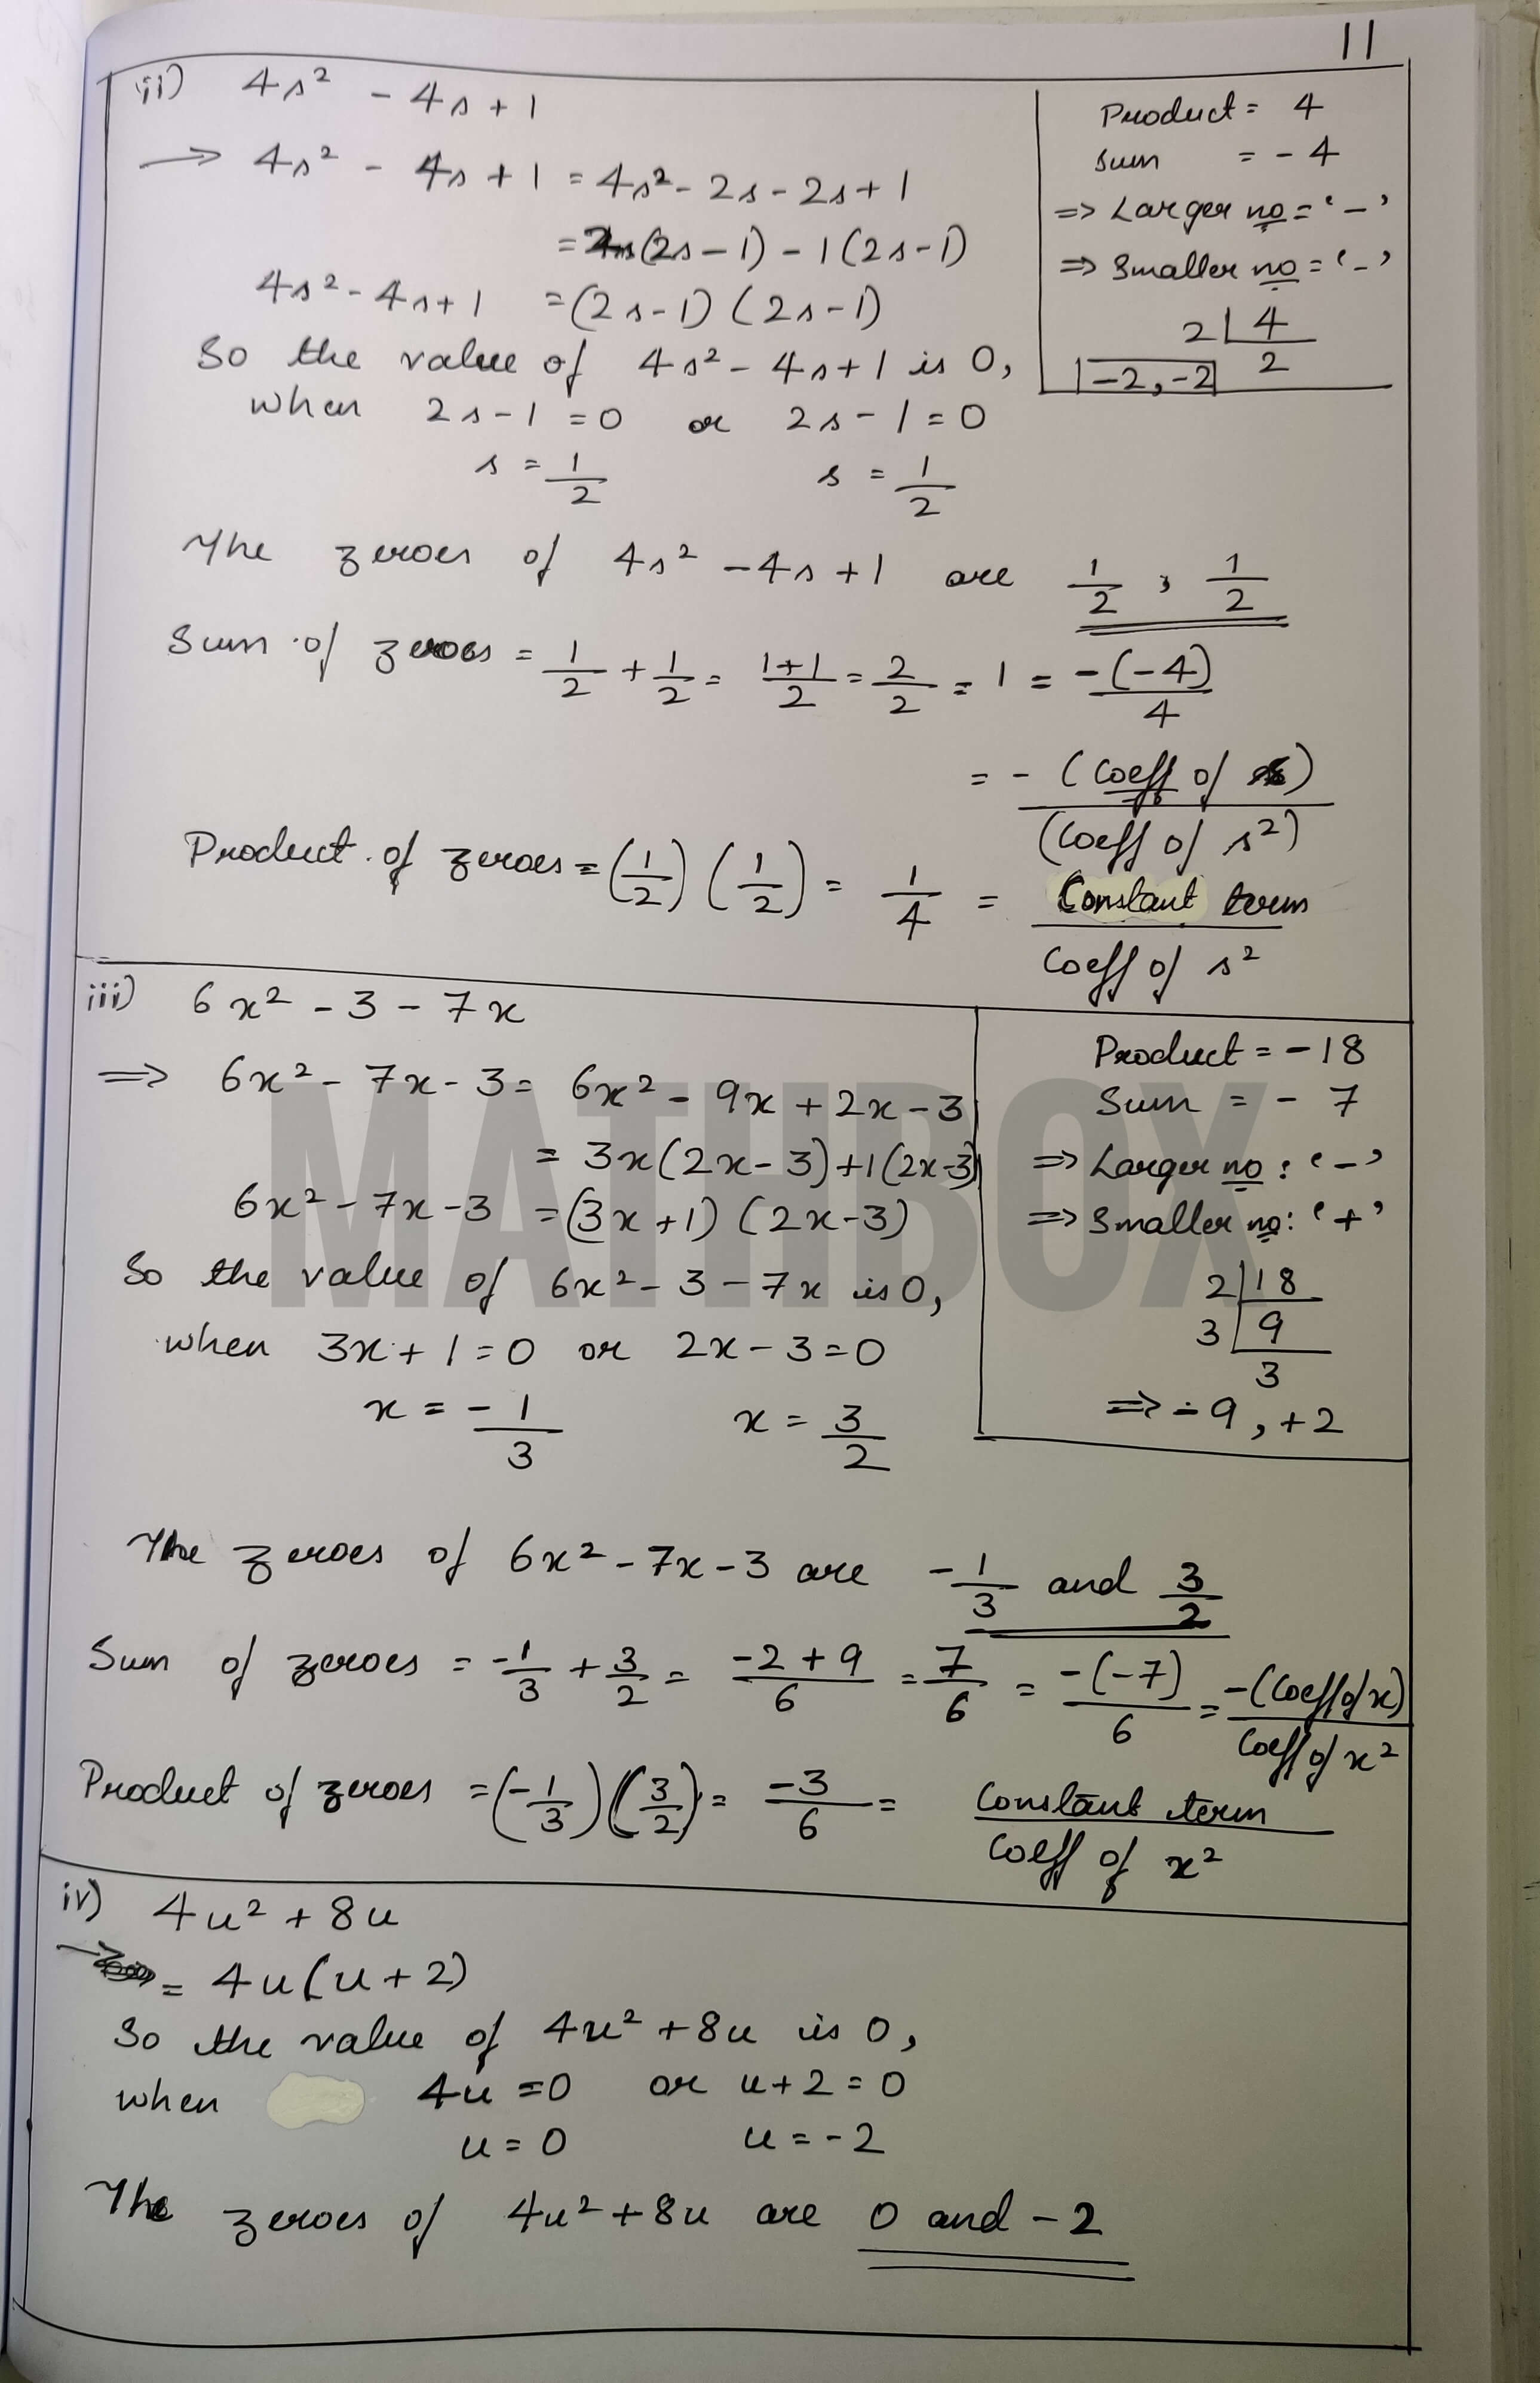 11
ii) 4s² - 4s + 1
→ 4s² - 4s + 1 = 4s² - 2s - 2s + 1
= 2s(2s - 1) - 1(2s - 1)
4s² - 4s + 1 = (2s - 1) (2s - 1)
So the value of 4s² - 4s + 1 is 0,
when 2s - 1 = 0 or 2s - 1 = 0
s = 1/2 s = 1/2
Product = 4
Sum = - 4
⇒ Larger no = '-'
⇒ Smaller no = '-'
2 | 4
2
-2, -2
The zeroes of 4s² - 4s + 1 are 1/2 , 1/2
Sum of zeroes = 1/2 + 1/2 = 1+1/2 = 2/2 = 1 = -(-4)/4
= - (Coeff of s)/(Coeff of s²)
Product of zeroes = (1/2) (1/2) = 1/4 = Constant term/Coeff of s²
iii) 6x² - 3 - 7x
⇒ 6x² - 7x - 3 = 6x² - 9x + 2x - 3
= 3x(2x - 3) + 1(2x-3)
6x² - 7x - 3 = (3x + 1) (2x - 3)
So the value of 6x² - 3 - 7x is 0,
when 3x + 1 = 0 or 2x - 3 = 0
x = -1/3 x = 3/2
Product = -18
Sum = - 7
⇒ Larger no : '-'
⇒ Smaller no: '+'
2 | 18
3 | 9
3
⇒ -9, +2
MATHBOX
The zeroes of 6x² - 7x - 3 are -1/3 and 3/2
Sum of zeroes = -1/3 + 3/2 = -2 + 9/6 = 7/6 = -(-7)/6 = -(Coeff of x)/Coeff of x²
Product of zeroes = (-1/3) (3/2) = -3/6 = Constant term/Coeff of x²
iv) 4u² + 8u
→ = 4u(u + 2)
So the value of 4u² + 8u is 0,
when 4u = 0 or u + 2 = 0
u = 0 u = - 2
The zeroes of 4u² + 8u are 0 and - 2